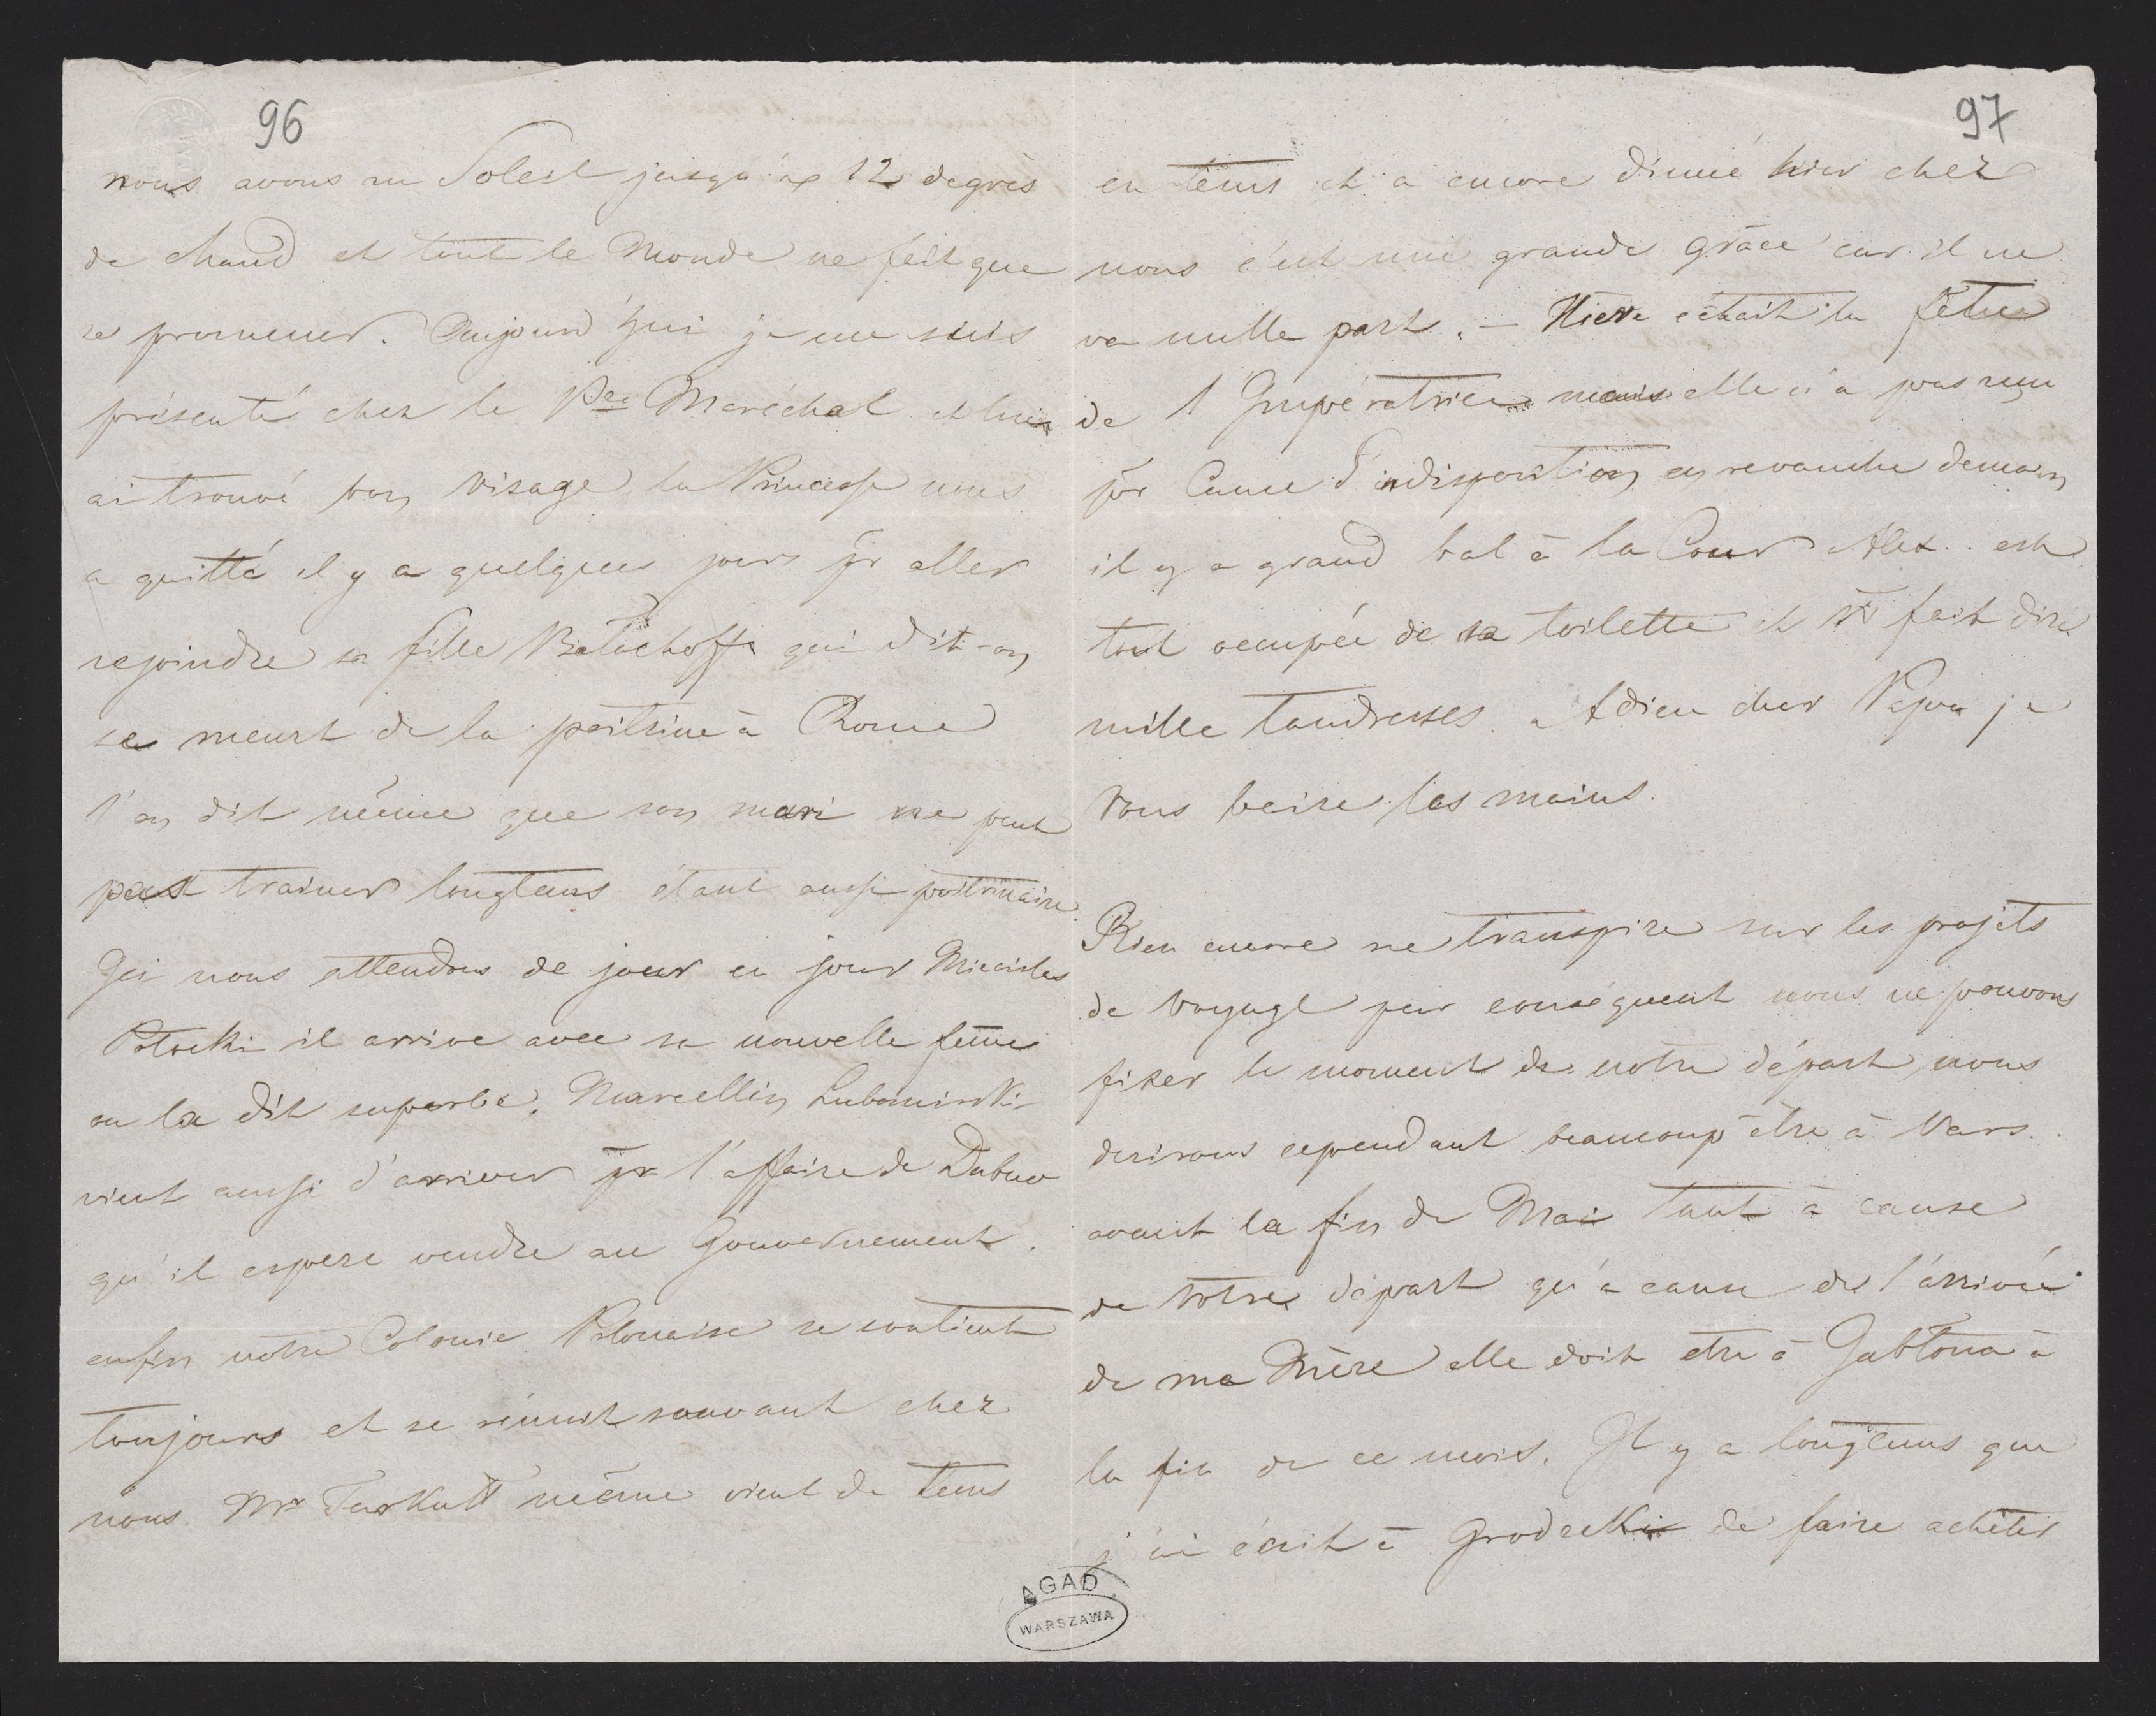 96
nous avons au Soleil jusqu'à 12 degrès
de chaud et tout le Monde ne fait que
se promener. Aujourd'hui je me suis
présenté chez le Pce Maréchal et lui
ai trouvé bon visage, la Princesse nous
a quitté il y a quelques jours pr aller
rejoindre sa fille Balachoff qui dit-on
se meurt de la poitrine à Rome
l'on dit même que son mari ne peut
pas trainer longtems étant aussi poitrinaire.
Ici nous attendons de jour en jour Miecislas
Potocki il arrive avec sa nouvelle feme
on la dit superbe. Marcellin Lubomirski
vient aussi d'arriver pr l'affaire de Dubno
qu'il espere vendre au Gouvernement.
enfin notre Colonie Polonaise se soutient
toujours et se réunit souvant chez
nous. Mr Turkutt même vient de tems
97
en tems et a encore dinné hier chez
nous c'est une grande grâce car il ne
va nulle part. – Hier c'était la fête
de l'Impératrice mais elle n'a pas reçu
pr cause d'indisposition, en revanche demain
il y a grand bal à la Cour Alex.. est
tout occupée de sa toilette et vs fait dire
mille tandresses. Adieu cher Papa je
vous baise les mains.
Rien encore ne transpire sur les projets
de voyage par conséquent nous ne pouvons
fixer le moment de notre départ, nous
desirons cependant beaucoup être à Vars.
avant la fin de Mai tant à cause
de votre départ qu'à cause de l'arrivée
de ma Mère elle doit etre à Jabłona à
la fin de ce mois. Il y a longtems que
j'ai écrit à Grodecki de faire acheter
AGAD
WARSZAWA